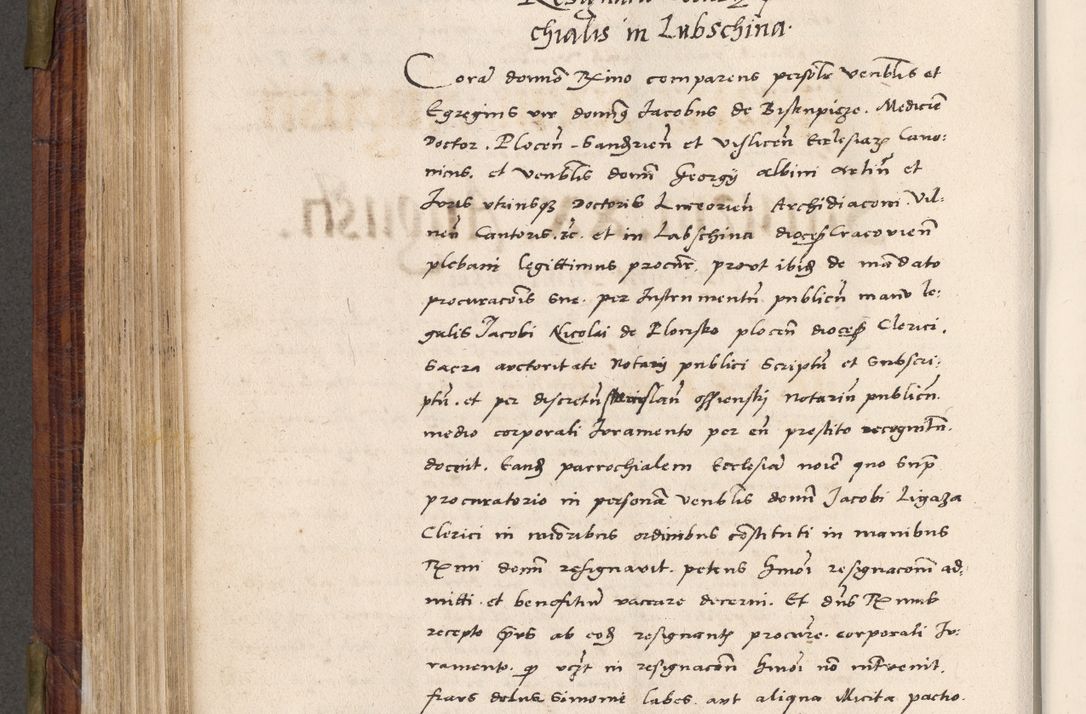 chialis in Lubschina.
Cora domo Rmo comparens persolr venblis et
Egregius vir domig Jacobus de Bistenpicze. Medicie
Doctor. Plocen. Sandzien et vislicen Ecclesiaz Cano:
nicus. et venblis domi Georgij Albini Artiu et
Juris vtriusqz Doctoris Luceorien Archidiaconi. Vil-
nen Cantoris. zc. et in Labschina dioces Cracovien
plebani legittimus procur. prout ibid de mandato
procuracois sue. per Instrumentu publicu manu le-
galis Jacobi Nicolai de Plonsko plocen dioces Clerici.
Sacra auctoritate Notarij publici Scriptu et Subscri:
ptu. et per discretu offienskj notariu publicu
medio corporali Juramento per eu prestito recognitu.
docuit. Eand parrochialem Ecclesia noie quo Sup
procuratorio in persona venblis domi Jacobi Ligaza
Clerici in minoribus ordinibus costituti in manibus
Rmi domi resignavit. petens hmoi resignacom ad-
mitti. et benefitiu vaccare decerni. Et dns Rmus
recepto prius ab eod resignante procure. corporali Ju-
ramento. in resignacom hmoi no intervenit.
fraus dolus Simonie labes. aut aliqua illicita pactio.